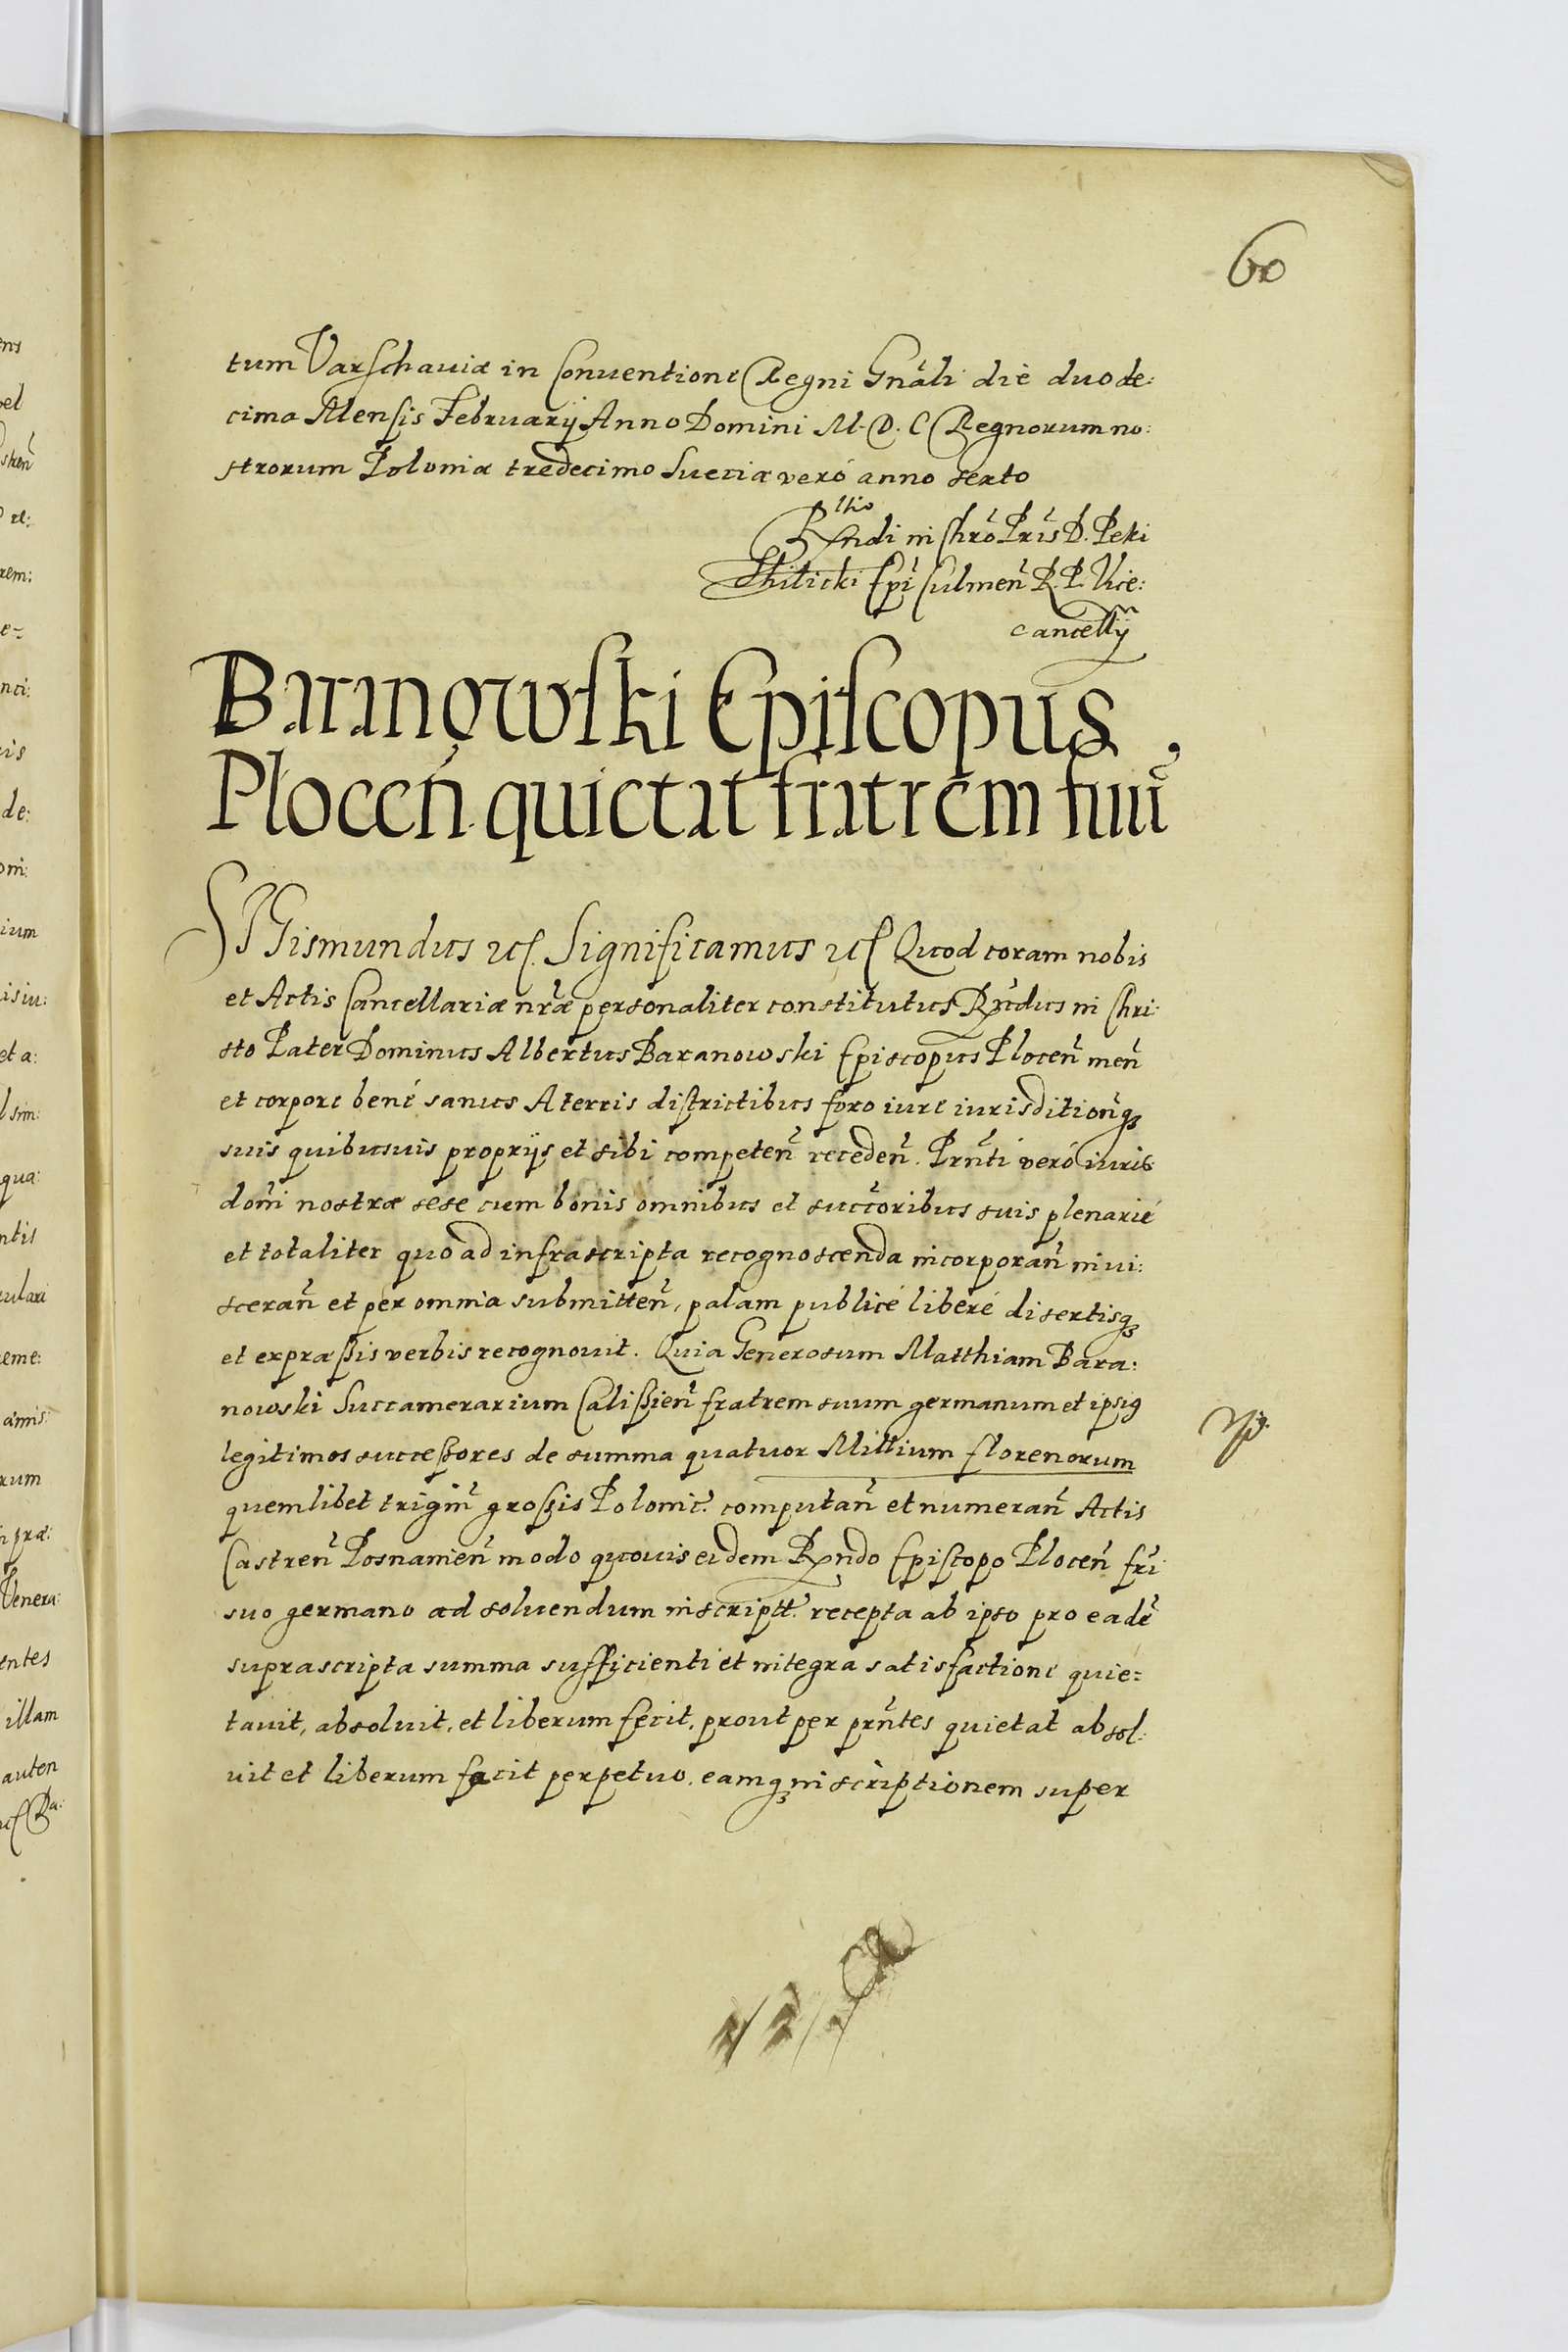 60
tum Varschauiæ in Conuentione Regni Gnãli die duode:
cima Mensis Februarij Anno Domini M. D. C Regnorum no:
strorum Poloniæ tredecimo Sueciæ veró anno sexto
Rndi in Chrõ Pris D. Petri
Tilicki Epi Culmen̄ R. P. Vice:
cancellij
Baranowski Episcopus
Plocen̄ quietat fratrem suū
SIGismundus etc. Significamus etc Quod coram nobis
et Actis Cancellariæ nr̃æ personaliter constitutus Rndus in Chri:
sto Pater Dominus Albertus Baranowski Episcopus Plocen̄ men̄
et corpore bené sanus A terris districtibus foro iure iurisditionq₃
suis quibusuis proprijs et sibi competen̄ receden̄. Prn̄ti veró iuris
don̄i nostræ sese cum bonis omnibus et succ̄oribus suis plenarié
et totaliter quo ad infrascripta recognoscenda incorporan̄ inui:
sceran̄ et per omnia submitten̄, palam publicé liberé disertisq₃
et expræssis verbis recognouit. Quia Generosum Matthiam Bara:
nowski Succamerarium Calissien̄ fratrem suum germanum et ipsi9
legitimos successores de summa quatuor Millium florenorum
quemlibet trigin̄ grossis Polonic̄. computan̄ et numeran̄ Actis
Castren̄ Posnanien̄ modo quouis eidem Rndo Episcopo Plocen̄ fri
suo germano ad soluendum inscriptt. recepta ab ipso pro eadē
suprascripta summa sufficienti et integra satisfactione quie=
tauit, absoluit, et liberum fecit, prout per prn̄tes quietat absol:
uit et liberum facit perpetuo, eamq₃ inscriptionem super